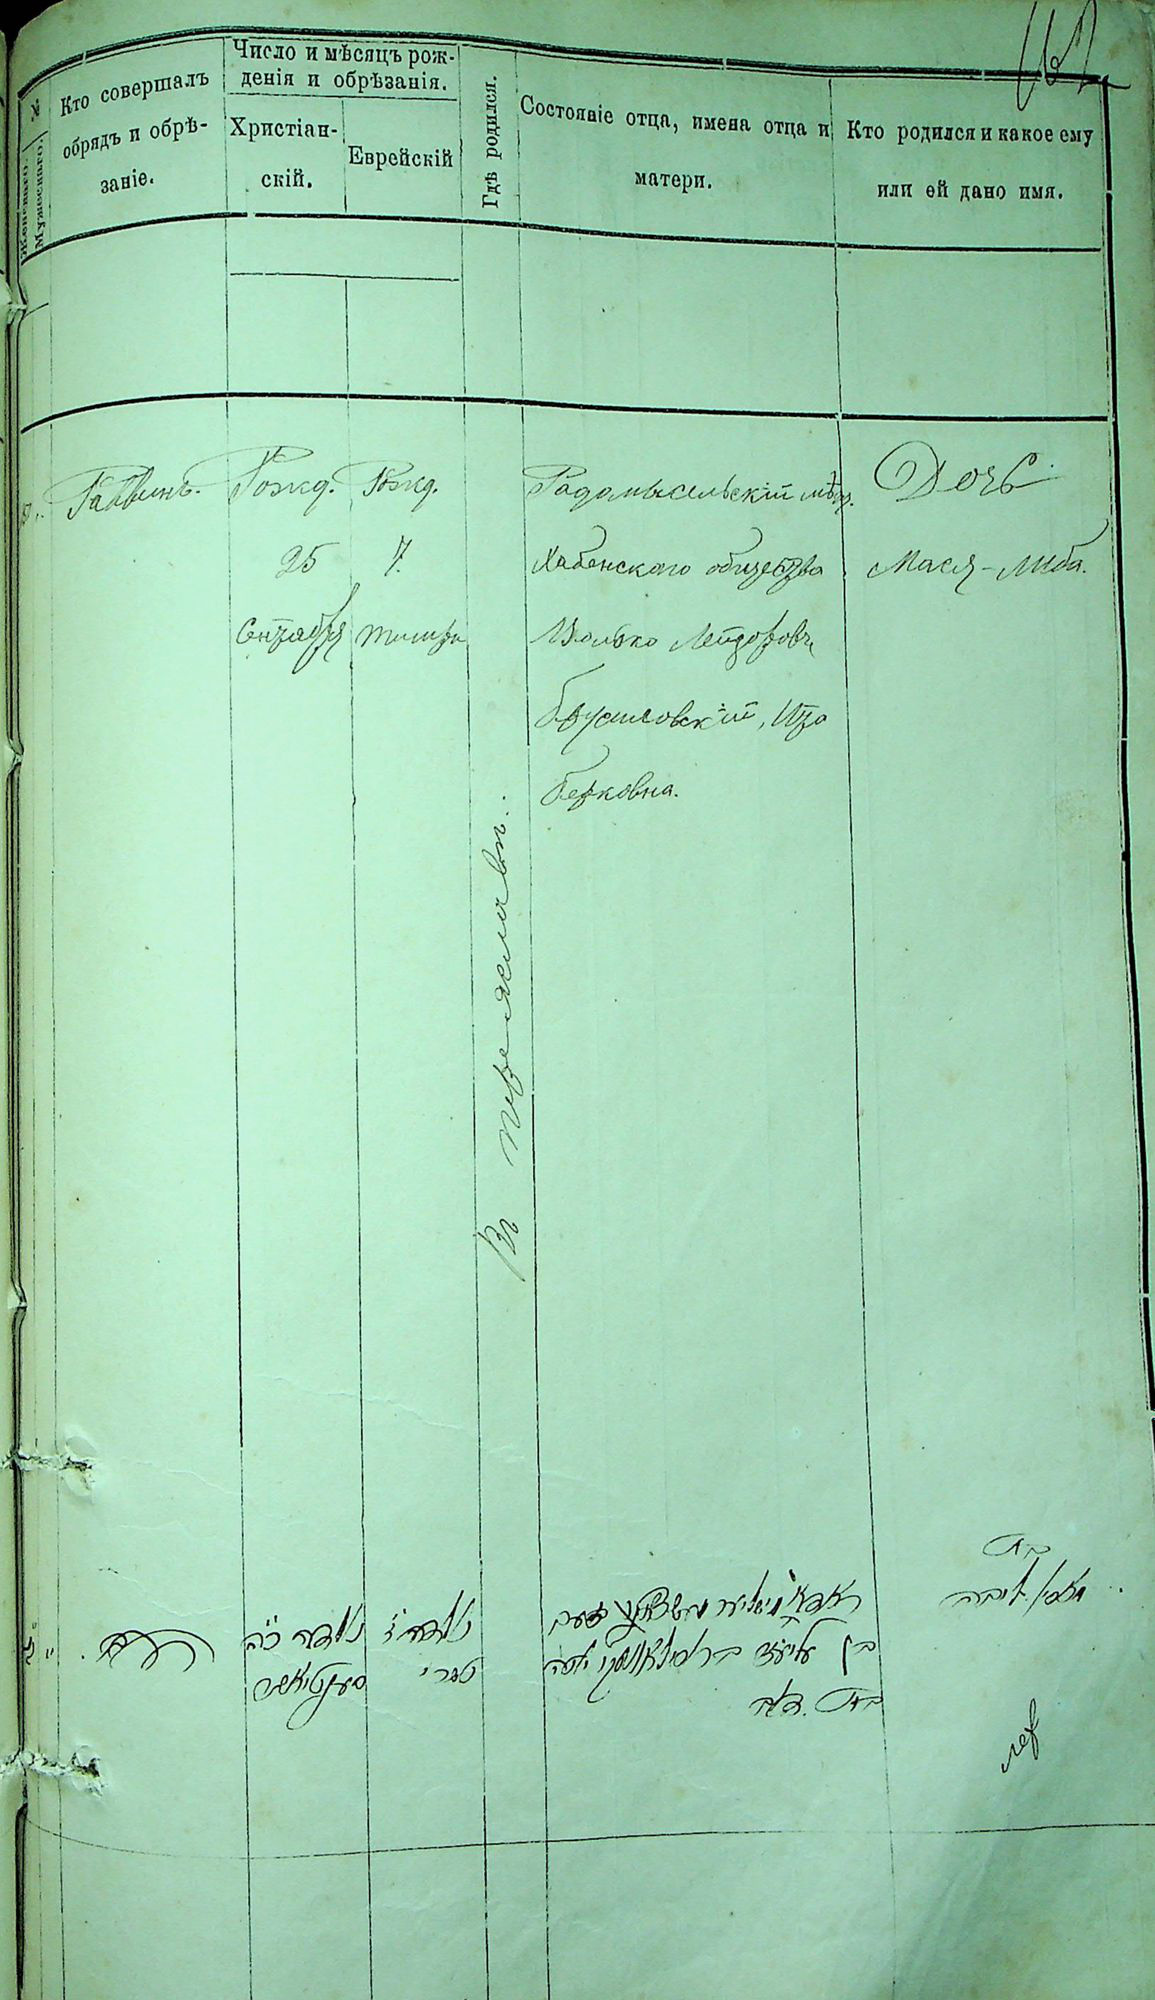 162
№
Женскаго.
Мужескаго.
Кто совершалъ
обрядъ и обрѣ-
заніе.
Число и мѣсяцъ рож-
денія и обрѣзанія.
Христіан-
скій.
Еврейскій
Гдѣ родился.
Состояніе отца, имена отца и
матери.
Кто родился и какое ему
или ей дано имя.
Раввинъ.
Рожд.
25
Сентября
Рожд.
7.
тишри
Въ Переяславѣ.
Радомысльскій мѣщ.
Хабенского общества
Волько Лейзоровъ
Брусиловскій,
Берковна.
Дочь
Мася-Либа.
הרב
נולדה כ״ה
סענטיאבר
נולדה ז׳
תשרי
בן
בת
בת
מאסי ליבה